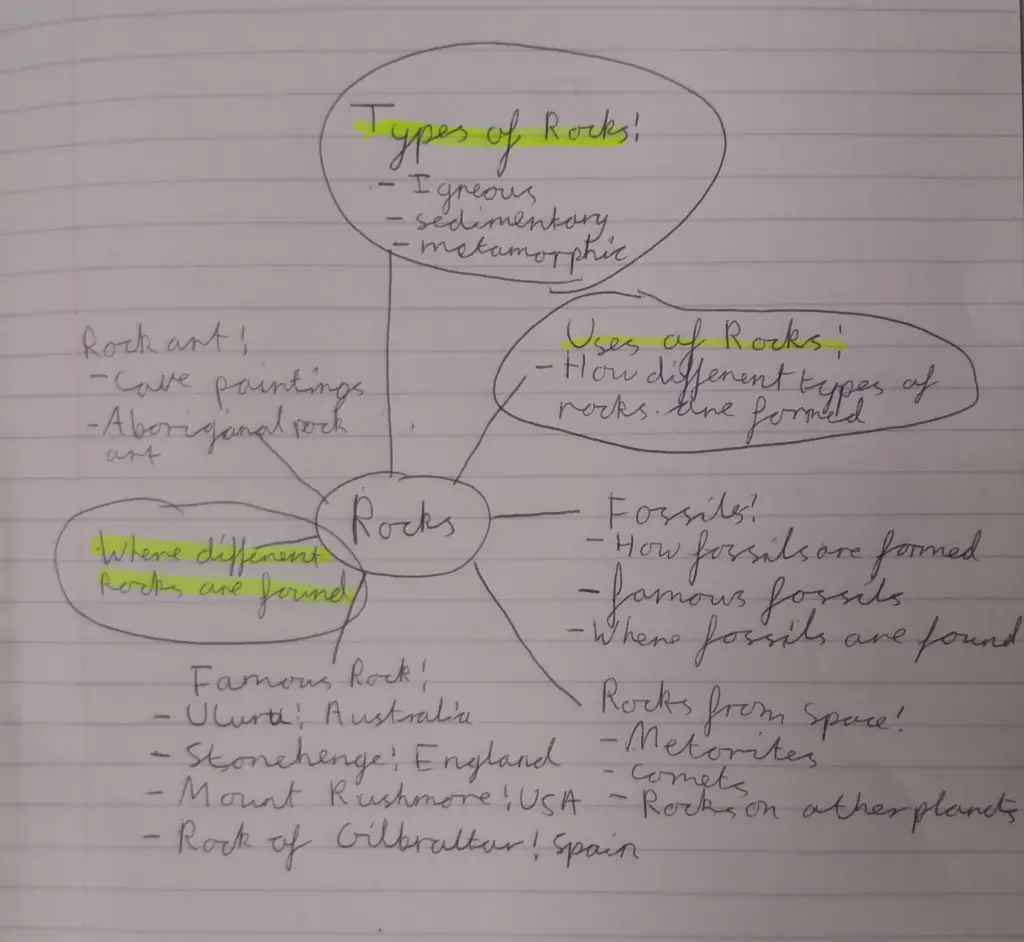 Types of Rocks!
- Igneous
- sedimentary
- metamorphic
Uses of Rocks!
- How different types of
rocks are formed
Rock art!
- Cave paintings
- Aboriganal rock
art
Rocks
Where different
Rocks are found
Fossils!
- How fossils are formed
- famous fossils
- Where fossils are found
Famous Rock!
- Uluru! Australia
- Stonehenge! England
- Mount Rushmore! USA
- Rock of Gilbraltar! Spain
Rocks from Space!
- Metorites
- Comets
- Rocks on other plants